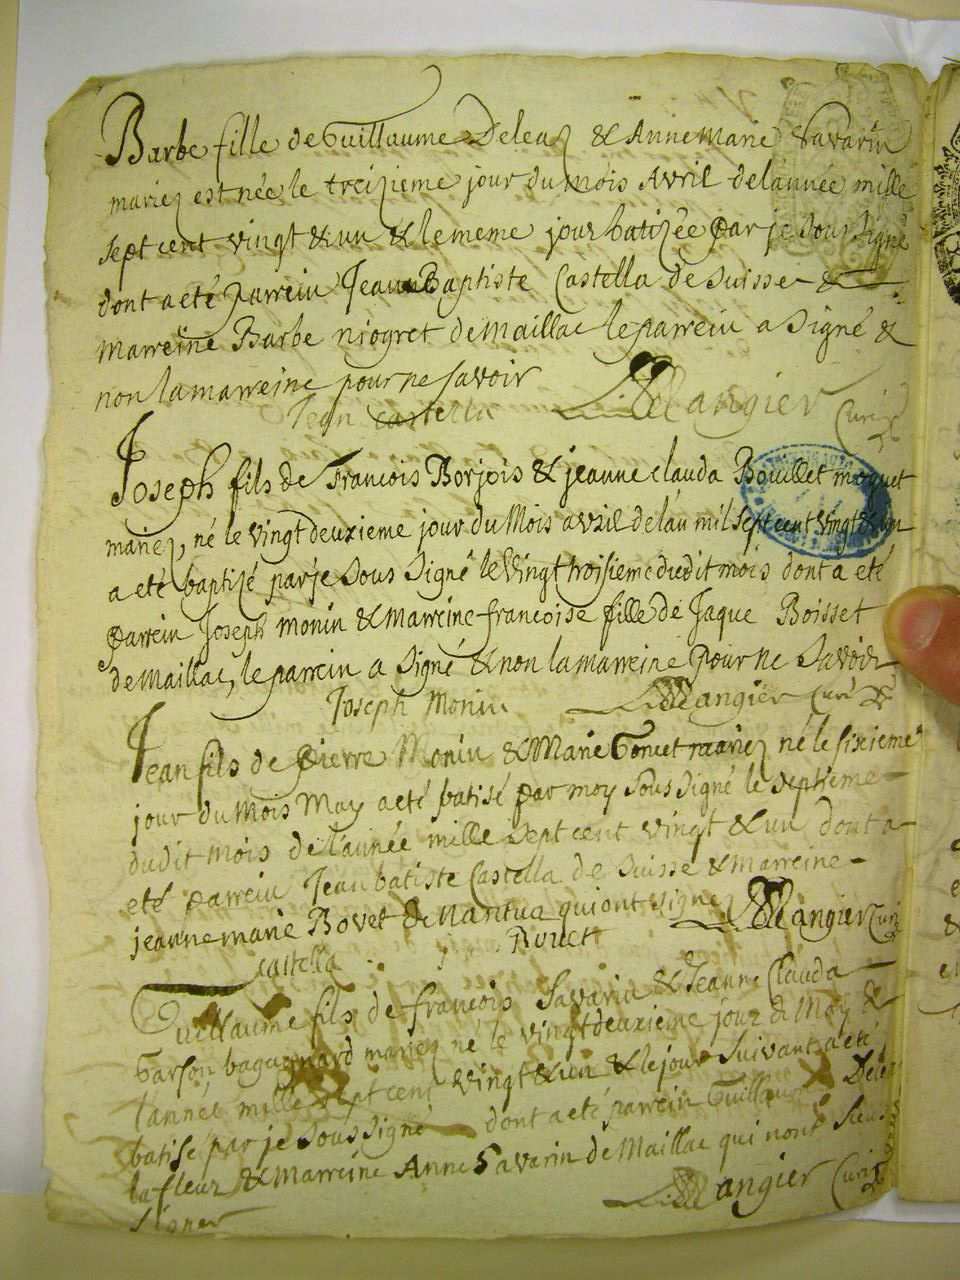 Barbe fille de Guillaume Deleaz & Anne Marie Savarin
mariez est née le treizieme jour du mois Avril de lánnée mille
sept cent vingt & un & le meme jour batizée par je sous signé
dont a eté parrein Jean Baptiste Castella de Suisse &
marreine Barbe niogret de Maillac le parrein a signé &
non la marreine pour ne savoir
Jean Castella Mangier Curé
Joseph fils de Francois Borjois & jeanne clauda Bouillet moquet
mariez, né le vingt deuxieme jour du Mois avril de lán mil sept cent vingt & un
a eté baptizé par je sous signé le vingt troisieme dudit mois dont a eté
parrein Joseph monin & marreine francoise fille de Jaque Boisset
de Maillac, le parrein a signé & non la marreine pour ne savoir
Joseph Monin Mangier Curé
Jean fils de Pierre Monin & Marie Goncet mariez né le sixieme
jour du Mois May a eté batisé par moy sous signé le septieme
dudit mois de lánnée mille sept cent vingt & un dont a
eté parrein Jean batiste Castella de Suisse & marreine
jeanne marie Bovet de Nantua qui ont signez Mangier Curé
castella Bovet
Guillaume fils de francois Savarin & Jeanne Clauda
Garson baguenard mariez né le vingt deuxieme jour de May &
lánnée mille sept cent vingt & un & le jour suivant a eté
batisé par je sous signé dont a eté parrein Guillaume Delea
la fleur & marreine Anne Savarin de Maillac qui nont sceu
signer Mangier Curé